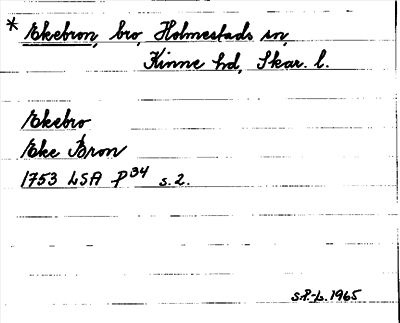 * Ekebron, bro, Holmestads sn,
Kinne hd, Skar. l.
Ekebro
Eke Bron
1753 LSA P34 s. 2.
S.P.-L. 1965